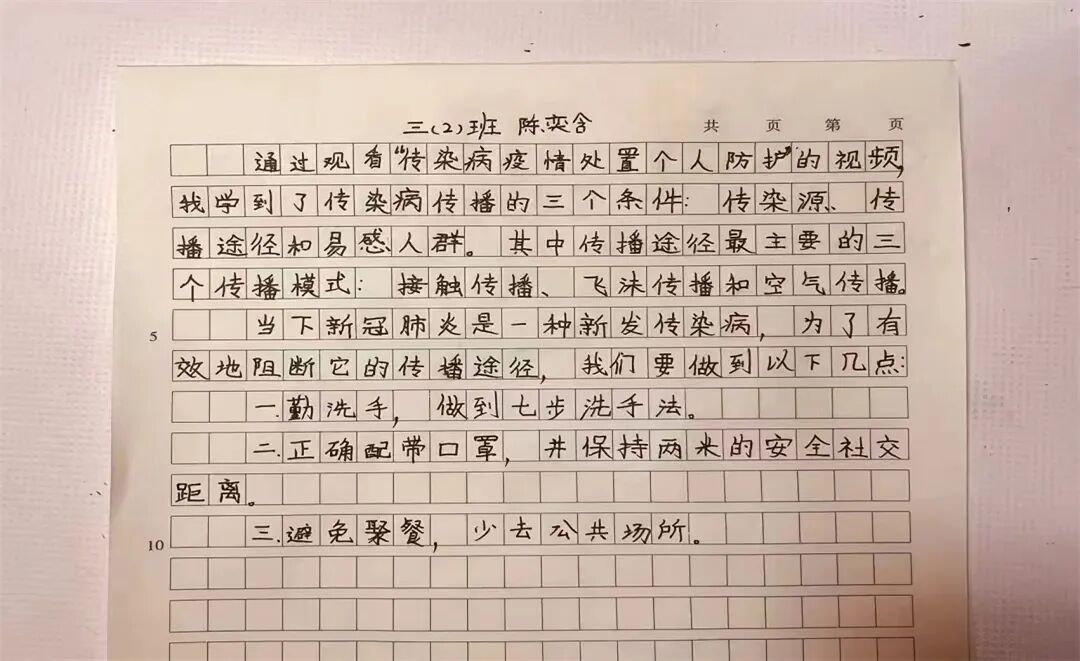 三(2)班 陈奕含
共 页 第 页
通过观看“传染病疫情处置个人防护”的视频,
我学到了传染病传播的三个条件: 传染源、传
播途径和易感人群。其中传播途径最主要的三
个传播模式: 接触传播、飞沫传播和空气传播。
5 当下新冠肺炎是一种新发传染病, 为了有
效地阻断它的传播途径, 我们要做到以下几点:
一.勤洗手, 做到七步洗手法。
二.正确配带口罩, 并保持两米的安全社交
距离。
10 三.避免聚餐, 少去公共场所。